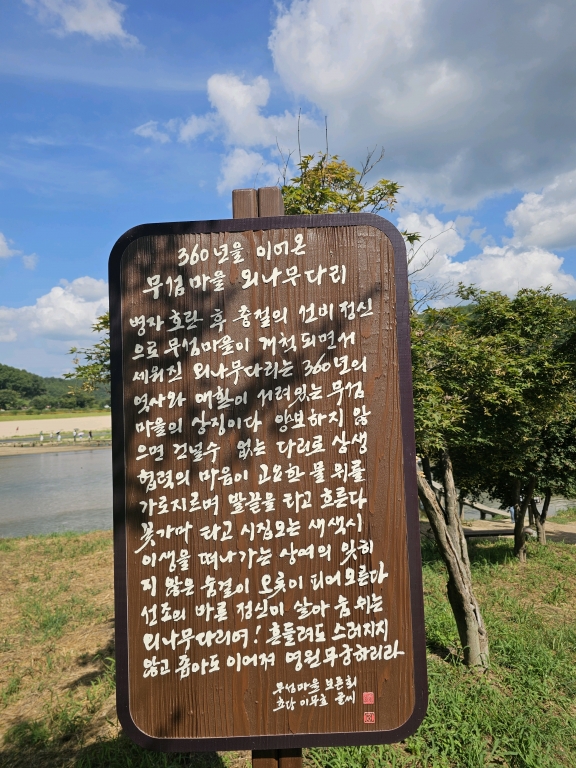 360년을 이어온
무섬마을 외나무다리
병자호란 후 충절의 선비정신
으로 무섬마을이 개척되면서
세워진 외나무다리는 360년의
역사와 애환이 서려있는 무섬
마을의 상징이다 양보하지 않
으면 건널수 없는 다리로 상생
협력의 마음이 고요한 물 위를
가로지르며 발끝을 타고 흐른다
꽃가마 타고 시집오는 새색시
이생을 떠나가는 상여의 잊히
지 않은 숨결이 오롯이 피어오른다
선조의 바른 정신이 살아 숨 쉬는
외나무다리여! 흔들려도 쓰러지지
않고 좁아도 이어져 영원무궁하리라
무섬마을 보존회
이무호 글씨